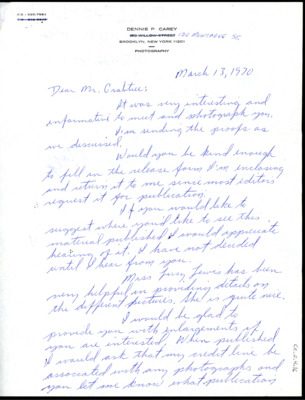 DENNIS P. CAREY
BROOKLYN, NEW YORK 11201
PHOTOGRAPHY
March 13, 1970
Dear Mr. Crabtree:
It was very interesting and
informative to meet and photograph you.
I'm sending the proofs as
we discussed.
Would you be kind enough
to fill in the release form I'm enclosing
and return it to me since most editors
request it for publication.
If you would like to
suggest where you'd like to see this
material published I would appreciate
hearing of it. I have not decided
until I hear from you.
Miss Lewis has been
very helpful in providing details on
the different pictures. She is quite nice.
I would be glad to
provide you with enlargements if
you are interested. When published
I would ask that my credit line be
associated with any photographs and
you let me know what publication